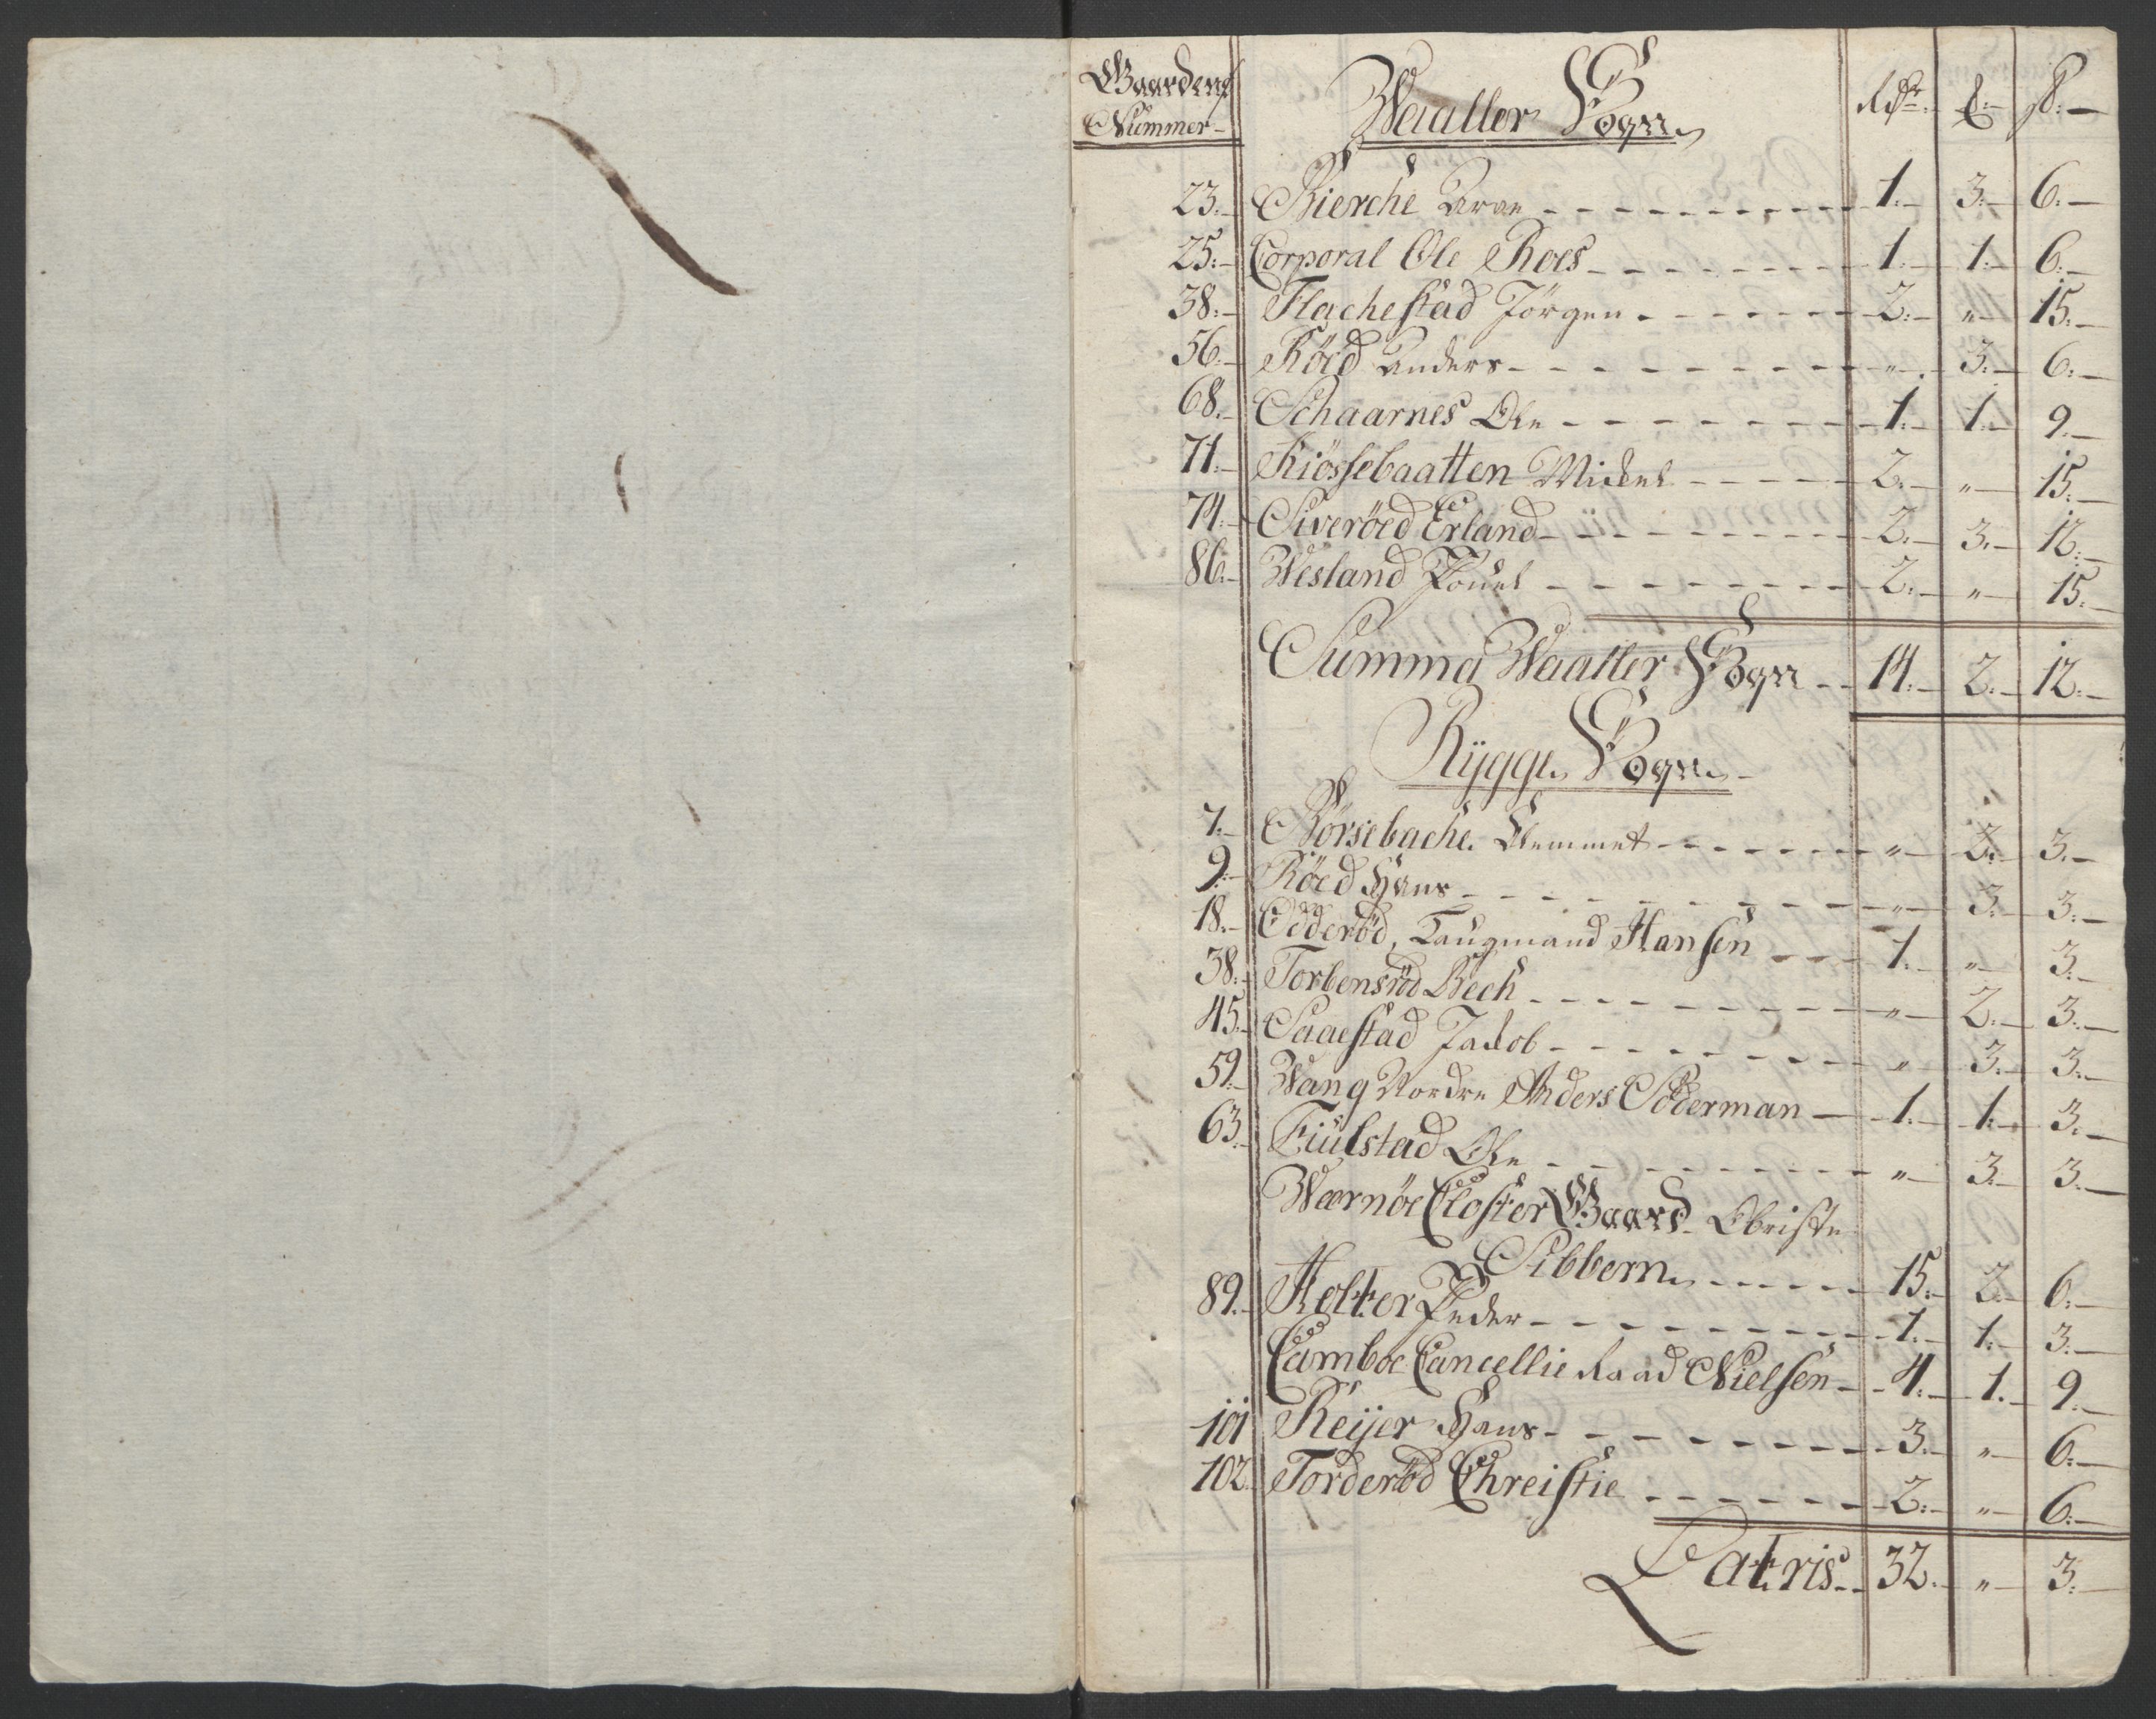 Gaardens
Nummer
Waaller Sogn
Rdr. ß.
23. Bierche Aran 1. 3. 6.
25. Corporal Ole Roes 1. 1. 6.
38. Hachestad Jörgen 2. " 15.
56. Röed Anders " 3. 6.
68. Schaarnes Ole 1. 1. 9.
71. Kiössebaatten Michel 2. " 15.
74. Siveröed Erland 2. 3. 12.
86. Wesland Pouel 2. " 15.
Summa Waaller Sogn 14. 2. 12.
Rÿgge Sogn
7. Börsebache Clemmet " 2. 3.
9. Röed Hans " 3. 3.
18. Odderöd, Laugmand Hansen 1. " 3.
38. Torbensröd Bech " 2. 3.
45. Saaestad Jacob " 3. 3.
59. Wang Nordre Anders Söderman 1. 1. 3.
63. Fiulstad Ole " 3. 3.
Wærnöe Closter Gaard Obriste
Sibbern 15. 2. 6.
89. Holter Peder 1. 1. 3.
Camboe Cancellie Raad Nielsen 4. 1. 9.
101 Reÿer Hans 3. " 6.
102. Torderöd Chreistie 2. " 6.
Latris 32. " 3.